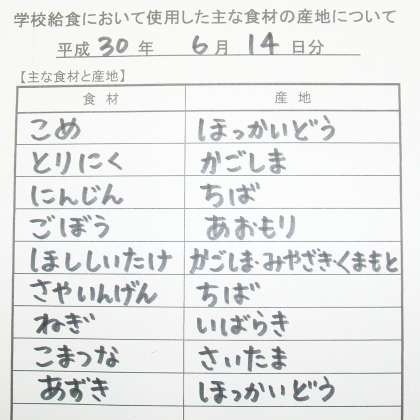 学校給食において使用した主な食材の産地について
平成 30 年 6月 14 日分
【主な食材と産地】
食材 産地
こめ ほっかいどう
とりにく かごしま
にんじん ちば
ごぼう あおもり
ほししいたけ かごしま・みやざき・くまもと
さやいんげん ちば
ねぎ いばらき
こまつな さいたま
あずき ほっかいどう